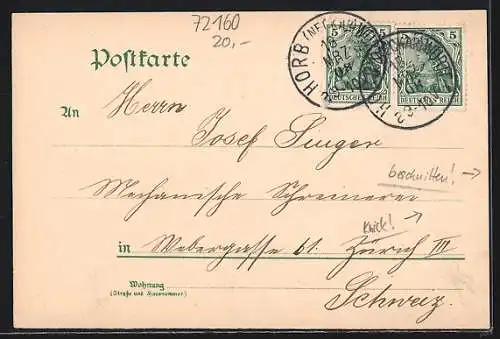 72160
20,-
Postkarte
HORB (NECKAR)
5 5
18
MRZ
DEUTSCHES REICH DEUTSCHES REICH
An Herrn
Josef Singer
beschnitten! →
Mechanische Schreinerei
Knick! ↗
in Webergasse 61. Zürich III
Wohnung
(Straße und Hausnummer)
Schweiz.